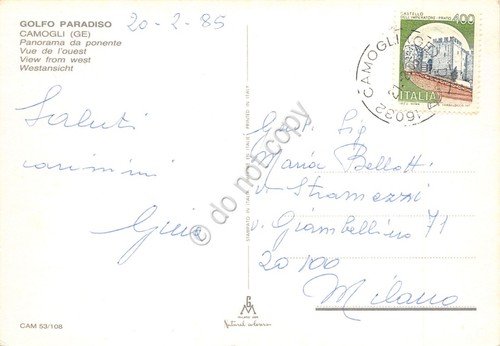 GOLFO PARADISO
CAMOGLI (GE)
Panorama da ponente
Vue de l'ouest
View from west
Westansicht
20-2-85
CASTELLO
DELL'IMPERATORE-PRATO
400
ITALIA
CAMOGLI
16032
Saluti
carissimi
Gina
Gent. Sig
Maria Bellotti
v. Stramezzi
v. Giambellino 71
20100
Milano
© do not copy
STAMPATO IN ITALIA
PRINTED IN ITALY
CAM 53/108